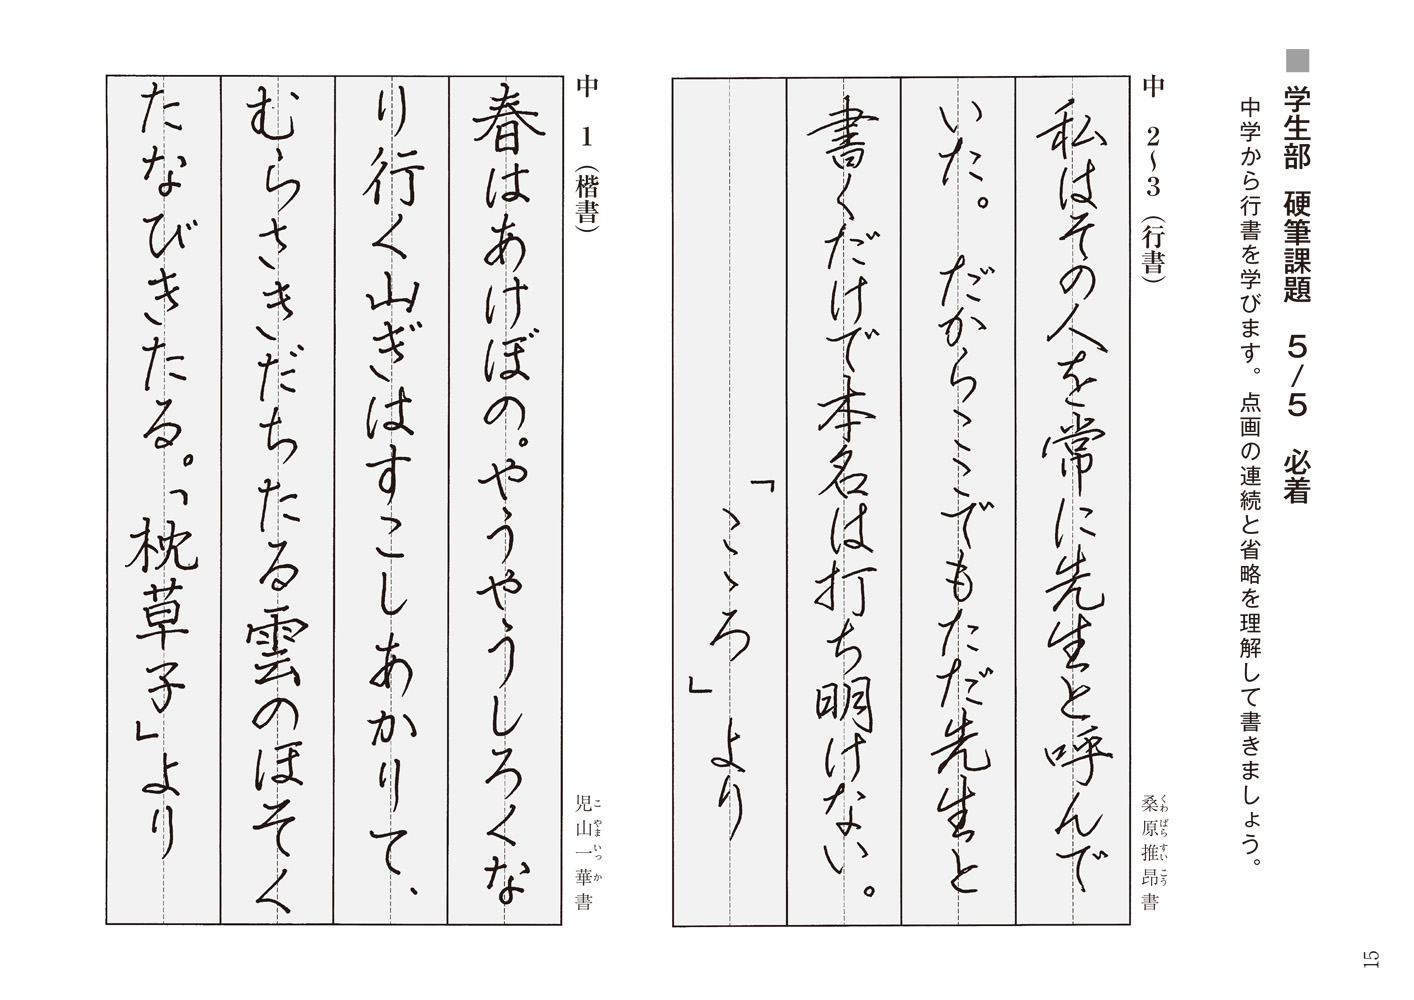 ■学生部 硬筆課題 5/5 必着
中学から行書を学びます。点画の連続と省略を理解して書きましょう。
中 2〜3（行書）
桑原推昂書
くわばらすいこう
私はその人を常に先生と呼んで
いた。だからここでもただ先生と
書くだけで本名は打ち明けない。
「こゝろ」より
中 1（楷書）
児山一華書
こやまいっか
春はあけぼの。やうやうしろくな
り行く山ぎはすこしあかりて、
むらさきだちたる雲のほそく
たなびきたる。「枕草子」より
15